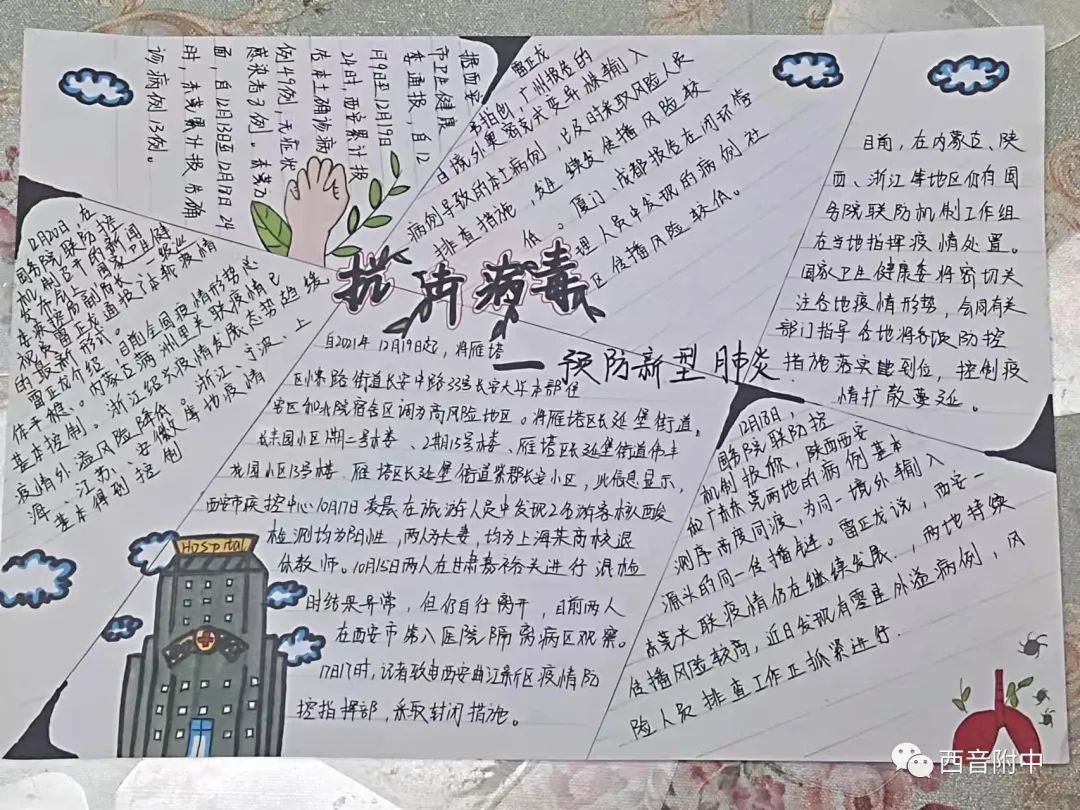 抗击病毒
——预防新型肺炎
据西安
市卫生健康
委通报，自12
月9日至12月19日
24时，西安累计报
告本土确诊病
例49例，无症状
感染者3例。东莞方
面，自12月13日至12月19日24
时，东莞累计报告确
诊病例13例。
雷正龙
指出，广州报告的
日境外奥密克戎变异株输入
病例导致的本土病例，以及时采取风险人员
排查措施，发生续发传播风险较
低。厦门、成都报告在闭环管
理人员中发现的病例社
区传播风险较低。
目前，在内蒙古、陕
西、浙江等地区仍有国
务院联防机制工作组
在当地指挥疫情处置。
国家卫生健康委将密切关
注各地疫情形势，会同有关
部门指导各地将各项防控
措施落实地到位，控制疫
情扩散蔓延。
12月20日，在
国务院联防控
机制召开的新闻
发布会上，国家卫健
委疾控局副局长、一级巡
视员雷正龙通报了本轮疫情
的最新形式。
雷正龙介绍，目前全国疫情形势总
体平稳。内蒙古满洲里关联疫情已
基本控制。浙江绍兴疫情发展态势延缓
疫情外溢风险降低。浙江、宁波、上
海、江苏、安徽等地疫情
基本得到控制
自2021年12月19日起，将雁塔
区小寨路街道长安中路33号长安大学本部住
宅区和水院宿舍区调为高风险地区。将雁塔区长延堡街道
长丰园小区1期二号楼、2期15号楼、雁塔区长延堡街道伟丰
花园小区13号楼、雁塔区长延堡街道紫郡长安小区，此信息显示，
西安市疾控中心10月17日凌晨在旅游人员中发现2名游客核酸
检测均为阳性，两人为夫妻，均为上海某高校退
休教师。10月15日两人在甘肃嘉裕关进行混检
时结果异常，但仍自行离开，目前两人
在西安市第八医院隔离病区观察。
17日17时，记者致电西安曲江新区疫情防
控指挥部，采取封闭措施。
12月18日，
国务院联防控
机制报仪，陕西西安
和广东东莞两地的病例基本
测序高度同源，为同一境外输入
源头的同一传播链。雷正龙说，西安—
东莞关联疫情仍在继续发展，两地持续
传播风险较高，近日发现有零星外溢病例，风
险人员排查工作正抓紧进行.
Hospital
西音附中